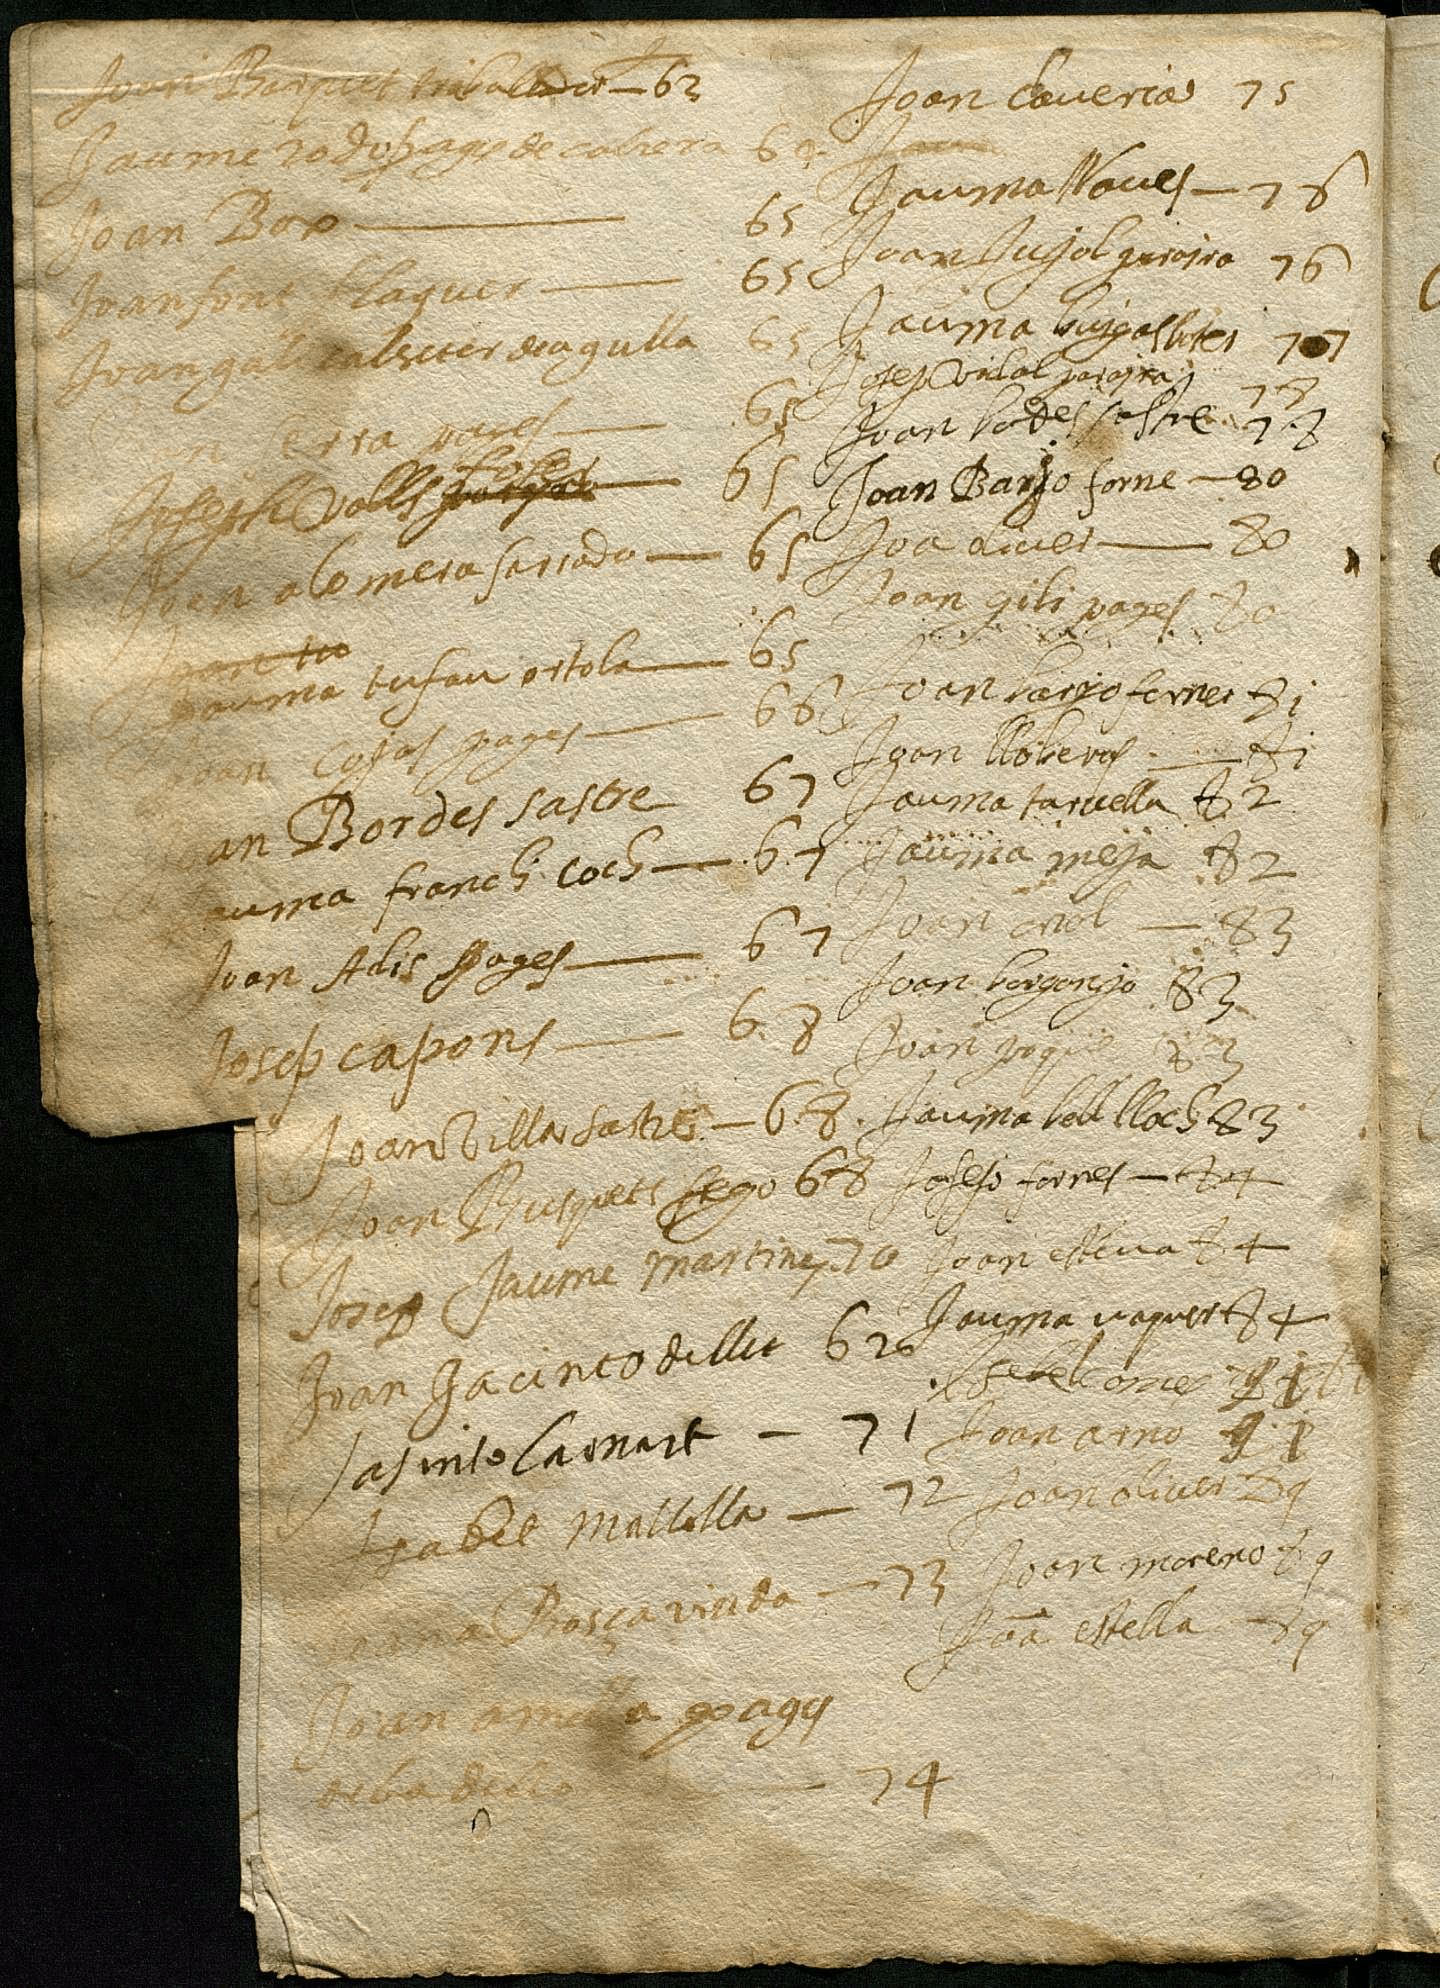 Joan Barquet traballador — 63
Jaume pages de cabrera 6
Joan Box — 65
Joan font Claquer — 65
Joan gali de agulla 65
Serra pages — 65
Joseph Valls foses — 65
Joan alomera sarrado — 65
Joan tu
Jauma tufau ortola — 65
Joan Cojas pages — 66
an Bordes sastre 67
auma franch coch — 67
Joan Adis pages — 67
Josep capons — 68
Joan Villa sastre — 68
Joan Busquets sego 68
Josep Jaume martines 70
Joan Jacinto dellit 62
Jasinto Carnart — 71
Isabet Mallolla — 72
a Rosça viuda — 73
Joan amella pages
de badello — 74
Joan Caueria 75
Jauma Noues — 76
Joan Pujol paraira 76
Jauma buigas 77
Josep Vidal paraira 78
Joan bodes sastre 78
Joan Barjo forne — 80
Joa oliuer — 80
Joan gili pages 80
Joan barjo forner 81
Joan lloberas — 81
Jauma taruella 82
Jauma meja 82
Joan orol — 83
Joan borgonjo 83
Joan 83
Jauma bell lloch 83
Josep fornes — 84
Joan esteua 84
Jauma vaquer 84
Isebel
Joan arno
Joan oliuer 89
Joan moreno 89
Joā estella — 89